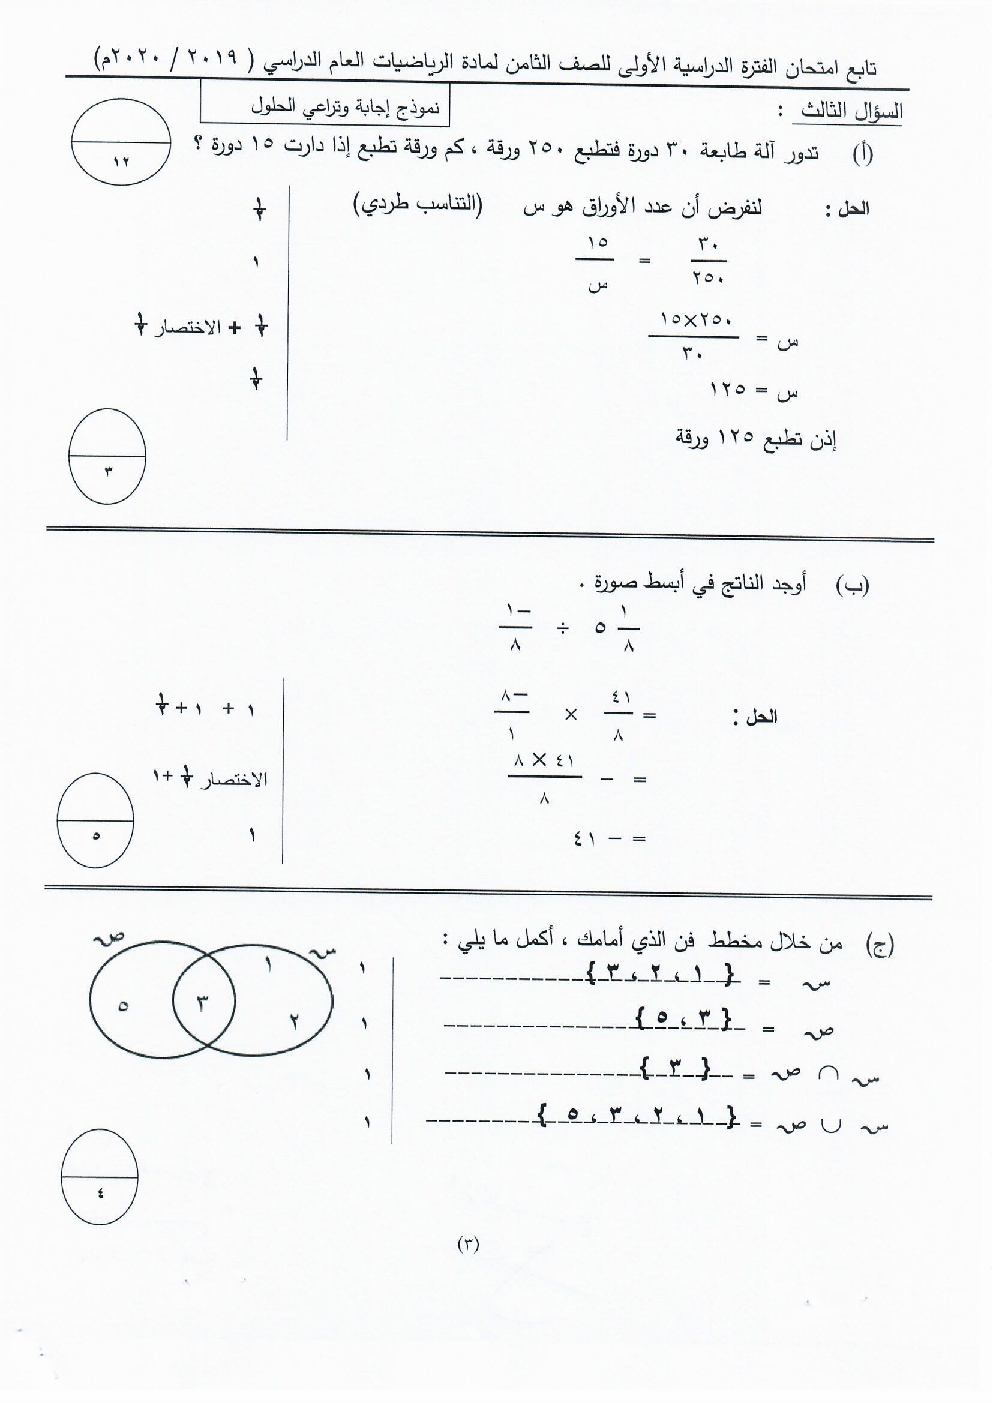 تابع امتحان الفترة الدراسية الأولى للصف الثامن لمادة الرياضيات العام الدراسي ( ٢٠١٩ / ٢٠٢٠م)
السؤال الثالث :
نموذج إجابة وتراعي الحلول
١٢
(أ) تدور آلة طابعة ٣٠ دورة فتطبع ٢٥٠ ورقة ، كم ورقة تطبع إذا دارت ١٥ دورة ؟
الحل : لنفرض أن عدد الأوراق هو س (التناسب طردي) ١/٢
٣٠/٢٥٠ = ١٥/س ١
س = ١٥×٢٥٠/٣٠ ١/٢ + الاختصار ١/٢
س = ١٢٥ ١/٢
إذن تطبع ١٢٥ ورقة
٣
(ب) أوجد الناتج في أبسط صورة .
٥ ١/٨ ÷ −١/٨
الحل : = ٤١/٨ × −٨/١ ١ + ١ + ١/٢
= − ٤١ × ٨/٨ الاختصار ١/٢ + ١
= − ٤١ ١
٥
(ج) من خلال مخطط فن الذي أمامك ، أكمل ما يلي :
س = { ١ ، ٢ ، ٣ } ١
ص = { ٣ ، ٥ } ١
س ∩ ص = { ٣ } ١
س ∪ ص = { ١ ، ٢ ، ٣ ، ٥ } ١
س ص
١
٢ ٣ ٥
٤
(٣)